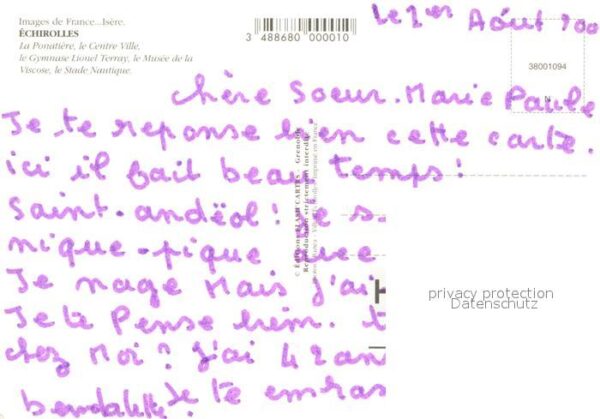 Images de France...Isère.
ÉCHIROLLES
La Ponatière, le Centre Ville,
le Gymnase Lionel Terray, le Musée de la
Viscose, le Stade Nautique.
3 488680 000010
Le 1er Août 00
38001094
N
chère Soeur. Marie Paule
Je te reponse bien cette carte.
ici il fait beau temps!
Saint-andëol! Je s
nique-pique avec
Je nage Mais j'ai
Je te Pense bien. t
chez Moi? j'ai 42 an
Je te embras
© Éditions FLASH CARTES - Grenoble
Reproduction strictement interdite
privacy protection
Datenschutz